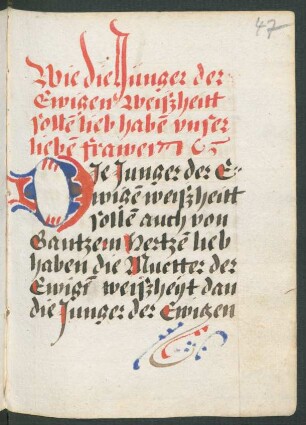 47
Wie die Junger der
Ewigen Weißheitt
sollē lieb habē vnser
liebē frawen
Die Junger der E-
wigen weißheitt
sollē auch von
Gantzem Hertzē lieb
haben die Muetter der
Ewigē weißheyt dan
die Junger der Ewigen